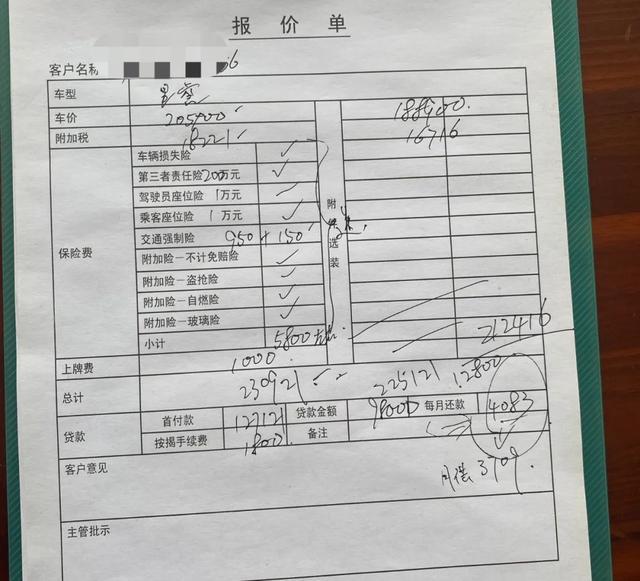 报价单
客户名称
车型
车价 205900 188900
附加税 18221 16716
车辆损失险 ✓
第三者责任险200万元 ✓
驾驶员座位险 1万元
乘客座位险 1万元 ✓
保险费 交通强制险 950+150
附加险—不计免赔险 ✓
附加险—盗抢险
附加险—自燃险 ✓
附加险—玻璃险 ✓
小计 5800 212416
附 选装
上牌费 1000
总计 230921 225121 12800
贷款 首付款 127121 贷款金额 98000 每月还款 4083
按揭手续费 1800 备注
客户意见 月还 3709
主管批示